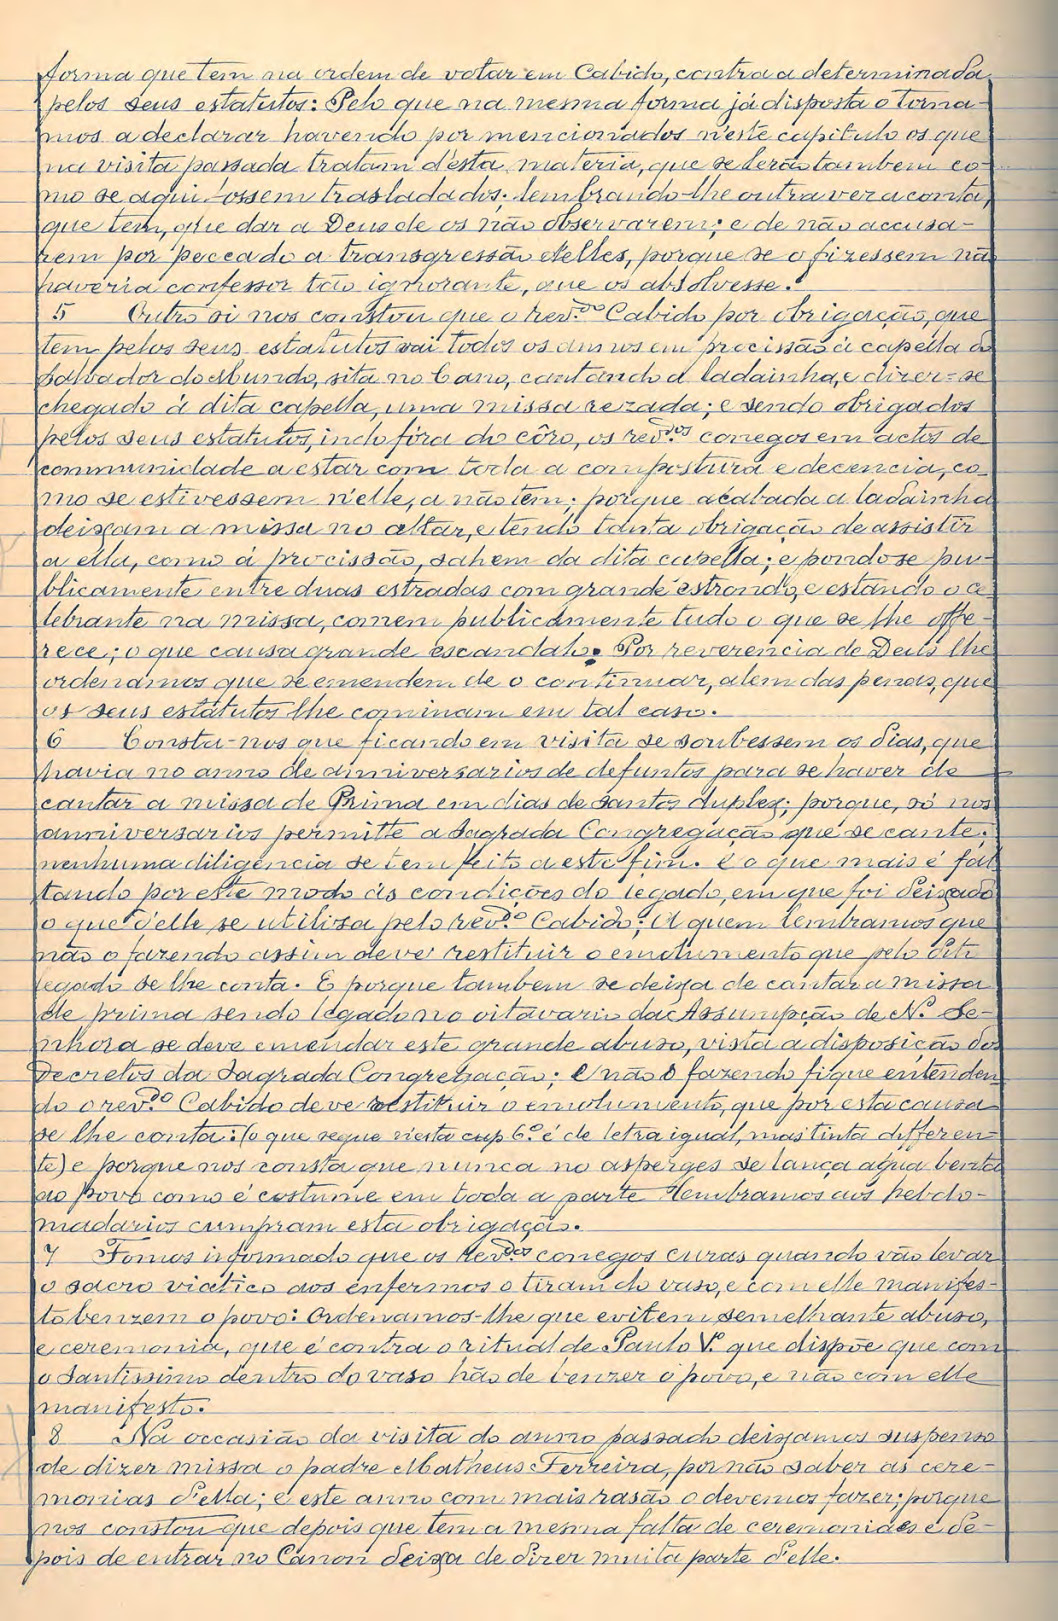 forma que tem na ordem de votar em Cabido, contra a determinada
pelos seus estatutos: Pelo que na mesma forma já disposta o torna-
mos a declarar havendo por mencionados n'este capitulo os que
na visita passada tratam d'esta materia, que se lerão tambem co-
mo se aqui fossem trasladados; lembrando-lhe outra vez a conta,
que tem, que dar a Deus de os não observarem; e de não accusa-
rem por peccado a transgressão d'elles, porque se o fizessem nã
haveria confessor tão ignorante, que os absolvesse.
5 Outro si nos constou que o rev.do Cabido por obrigação, que
tem pelos seus estatutos vai todos os annos em procissão á capella do
Salvador do Mundo, sita no Cano, cantando a ladainha, e dizer-se
chegado á dita capella, uma missa rezada; e sendo obrigados
pelos seus estatutos, indo fóra do côro, os rev.dos conegos em actos de
communidade a estar com toda a compostura e decencia, co-
mo se estivessem n'elle, a não tem; porque acabada a ladainha
deixam a missa no altar, e tendo tanta obrigação de assistir
a ella, como á procissão, sahem da dita capella; e pondo-se pu-
blicamente entre duas estradas com grande estrondo, e estando o ce-
lebrante na missa, comem publicamente tudo o que se lhe offe-
rece; o que causa grande escandalo. Por reverencia de Deus lhe
ordenamos que se emendem de o continuar, alem das penas, que
os seus estatutos lhe cominam em tal caso.
6 Consta-nos que ficando em visita se soubessem os dias, que
havia no anno de anniversarios de defuntos para se haver de
cantar a missa de Prima em dias de santos duplex; porque, só nos
anniversarios permitte a Sagrada Congregação que se cante;
nenhuma diligencia se tem feito a este fim. E o que mais é fal
tando por este modo ás condições do legado, em que foi deixado
o que d'elle se utilisa pelo rev.do Cabido; A quem lembramos que
não o fazendo assim deve restituir o emolumento que pelo dito
legado se lhe conta. E porque tambem se deixa de cantar a missa
de prima sendo legado no oitavario da Assumpção de N.a Se-
nhora se deve emendar este grande abuso, vista a disposição dos
Decretos da Sagrada Congregação; e não o fazendo fique entenden
do o rev.do Cabido deve restituir o emolumento, que por esta causa
se lhe conta: (o que segue n'esta cap 6.º é de letra igual, mas tinta differen-
te) e porque nos consta que nunca no asperges se lança agua benta
ao povo como é costume em toda a parte lembramos aos hebdo-
madarios cumpram esta obrigação.
7 Fomos informado que os rev.dos conegos curas quando vão levar
o sacro viatico aos enfermos o tiram do vaso, e com elle manifes-
to benzem o povo: Ordenamos-lhe que evitem semelhante abuso,
e ceremonia, que é contra o ritual de Paulo V. que dispõe que com
o Santissimo dentro do vaso hão de benzer o povo, e não com elle
manifesto.
8 Na occasião da visita do anno passado deixamos suspenso
de dizer missa o padre Matheus Ferreira, por não saber as cere-
monias d'ella; e este anno com mais rasão o devemos fazer; porque
nos constou que depois que tem a mesma falta de ceremonias e de-
pois de entrar no Canon deixa de dizer muita parte d'elle.